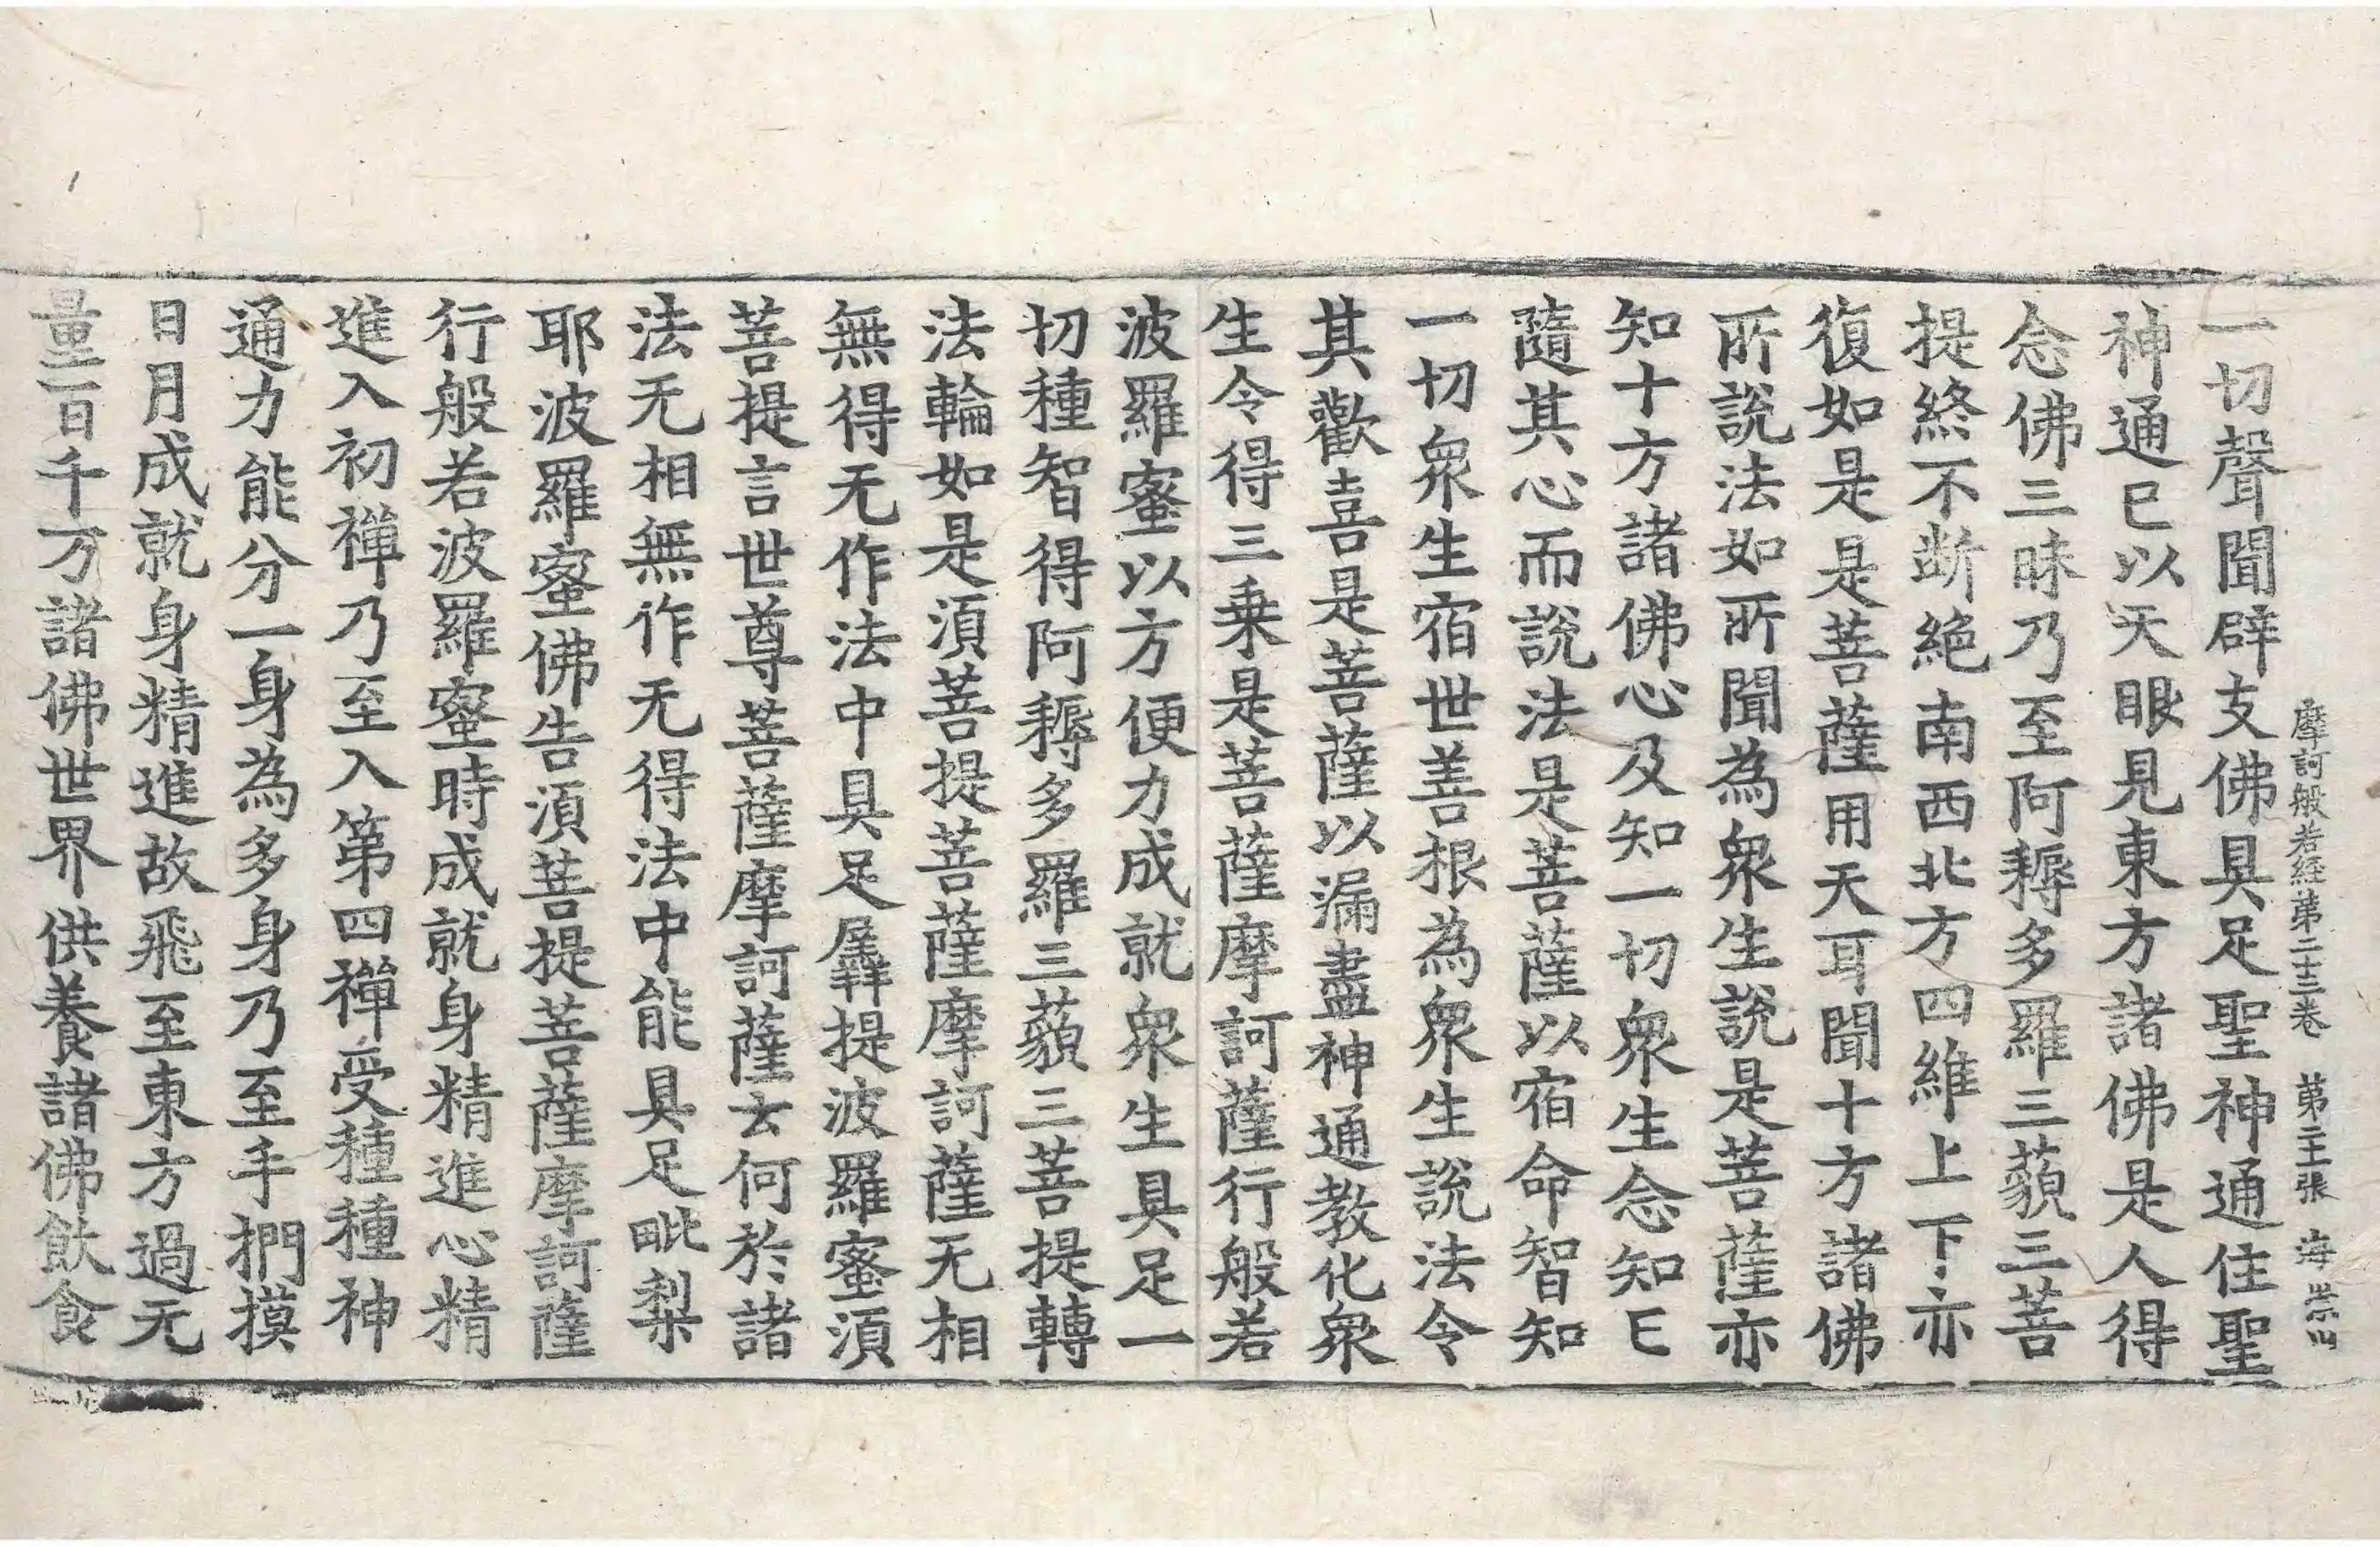 摩訶般若経第二十三卷 第二十張 海 崇
一切聲聞辟支佛具足聖神通住聖
神通已以天眼見東方諸佛是人得
念佛三昧乃至阿耨多羅三藐三菩
提終不断絕南西北方四維上下亦
復如是是菩薩用天耳聞十方諸佛
所說法如所聞為衆生說是菩薩亦
知十方諸佛心及知一切衆生念知已
隨其心而說法是菩薩以宿命智知
一切衆生宿世善根為衆生說法令
其歡喜是菩薩以漏盡神通教化衆
生令得三乗是菩薩摩訶薩行般若
波羅蜜以方便力成就衆生具足一
切種智得阿耨多羅三藐三菩提轉
法輪如是湏菩提菩薩摩訶薩无相
無得无作法中具足羼提波羅蜜湏
菩提言世尊菩薩摩訶薩云何於諸
法无相無作无得法中能具足毗梨
耶波羅蜜佛告湏菩提菩薩摩訶薩
行般若波羅蜜時成就身精進心精
進入初禪乃至入第四禪受種種神
通力能分一身為多身乃至手捫摸
日月成就身精進故飛至東方過无
量百千万諸佛世界供養諸佛飲食